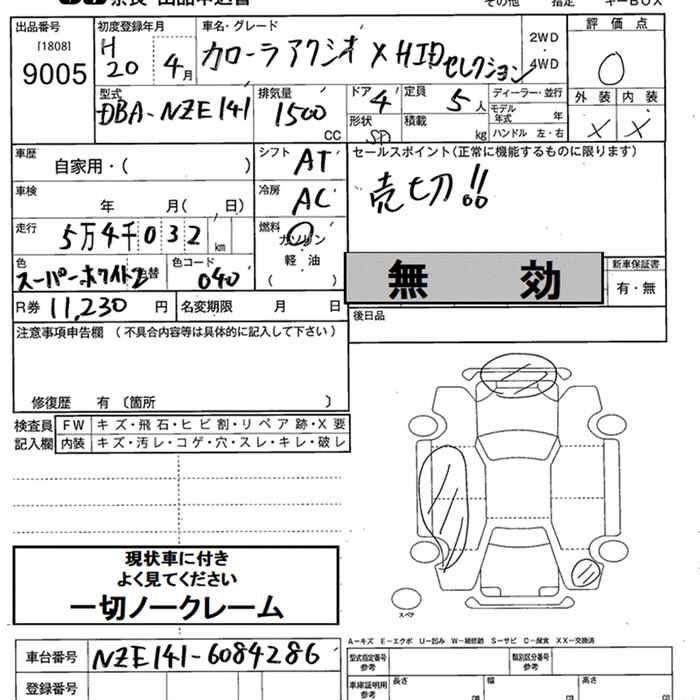 奈良 出品申込書 その他 指定 キーBOX
出品番号 初度登録年月 車名・グレード 評価点
[1808]
9005
H20 4月
カローラアクシオ X HIDセレクション
2WD
4WD
型式 DBA-NZE141
排気量 1500 CC
ドア 4 定員 5人
形状 SD 積載 kg
ディーラー・並行
モデル年式 年
ハンドル 左・右
外装 内装
X X
車歴 自家用・( )
シフト AT
セールスポイント(正常に機能するものに限ります)
売切!!
車検 年 月( 日)
冷房 AC
走行 5万4千032 km
燃料 ガソリン
軽油
( )
色 スーパーホワイト2 色替
色コード 040
無効
新車保証書
有・無
R券 11,230 円 名変期限 月 日
後日品
注意事項申告欄 (不具合内容等は具体的に記入して下さい)
修復歴 有 〔箇所 〕
検査員 FW キズ・飛石・ヒビ割・リペア跡・X要
記入欄 内装 キズ・汚レ・コゲ・穴・スレ・キレ・破レ
現状車に付き
よく見てください
一切ノークレーム
スペア
A-キズ E-エクボ U-凹み W-補修跡 S-サビ C-腐食 XX-交換済
車台番号 NZE141-6084286
登録番号
型式指定番号 参考 類別区分番号 参考
車庫証明用 参考 長さ 幅 高さ